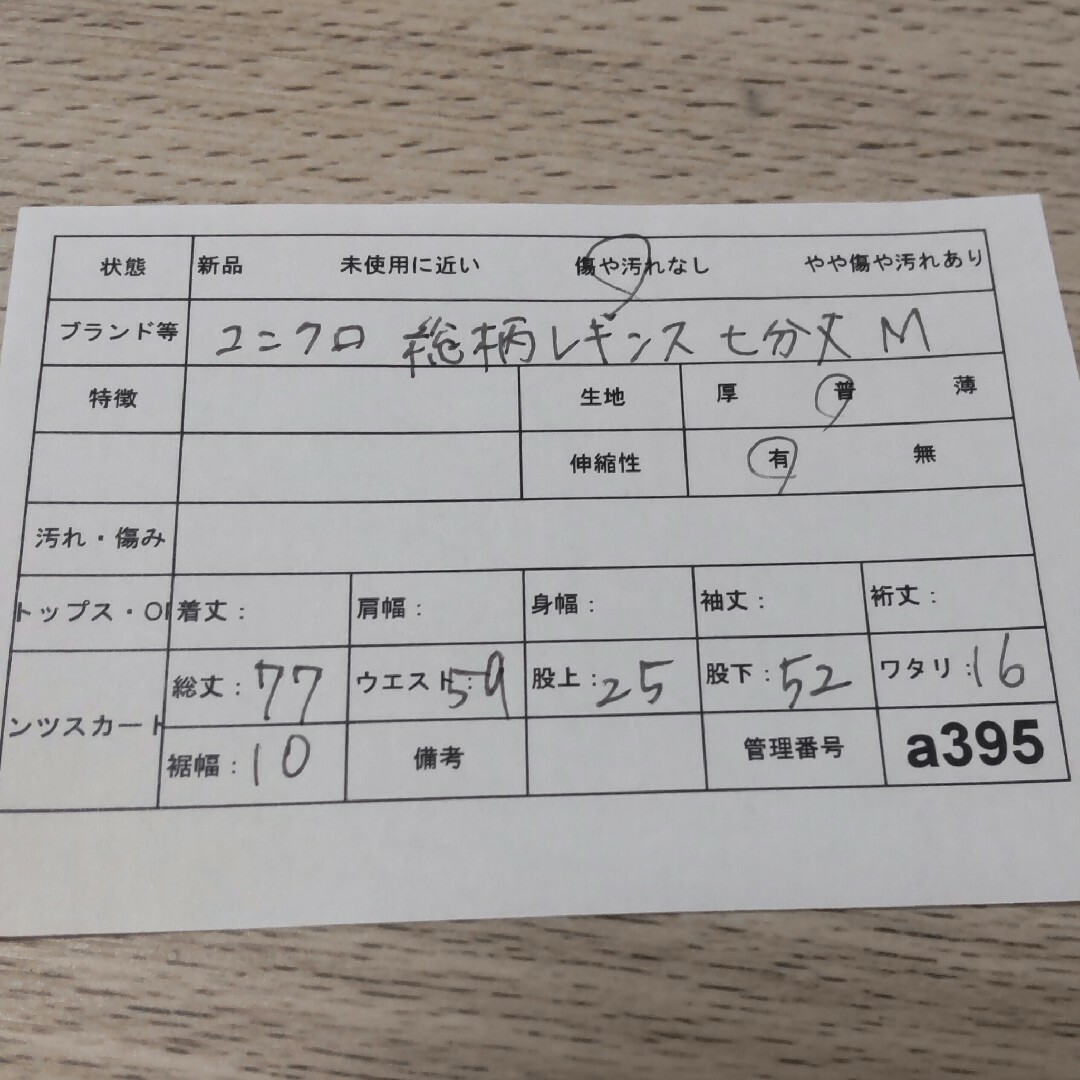 状態 新品 未使用に近い 傷や汚れなし やや傷や汚れあり
ブランド等 ユニクロ 総柄レギンス 七分丈 M
特徴 生地 厚 普 薄
伸縮性 有 無
汚れ・傷み
トップス・OP 着丈: 肩幅: 身幅: 袖丈: 裄丈:
ンツスカート 総丈:77 ウエスト:59 股上:25 股下:52 ワタリ:16
裾幅:10 備考 管理番号 a395